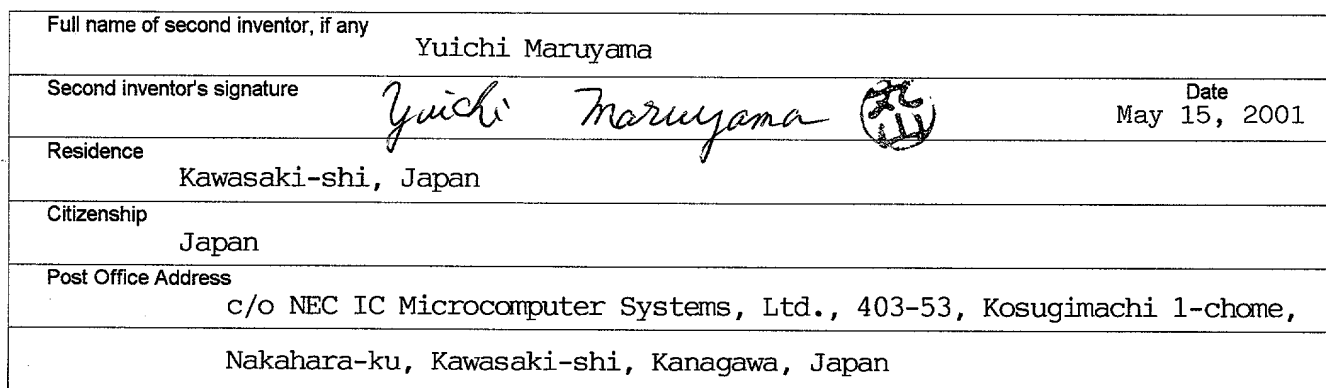 Full name of second inventor, if any
Yuichi Maruyama
Second inventor's signature
Yuichi Maruyama 丸山
Date
May 15, 2001
Residence
Kawasaki-shi, Japan
Citizenship
Japan
Post Office Address
c/o NEC IC Microcomputer Systems, Ltd., 403-53, Kosugimachi 1-chome,
Nakahara-ku, Kawasaki-shi, Kanagawa, Japan